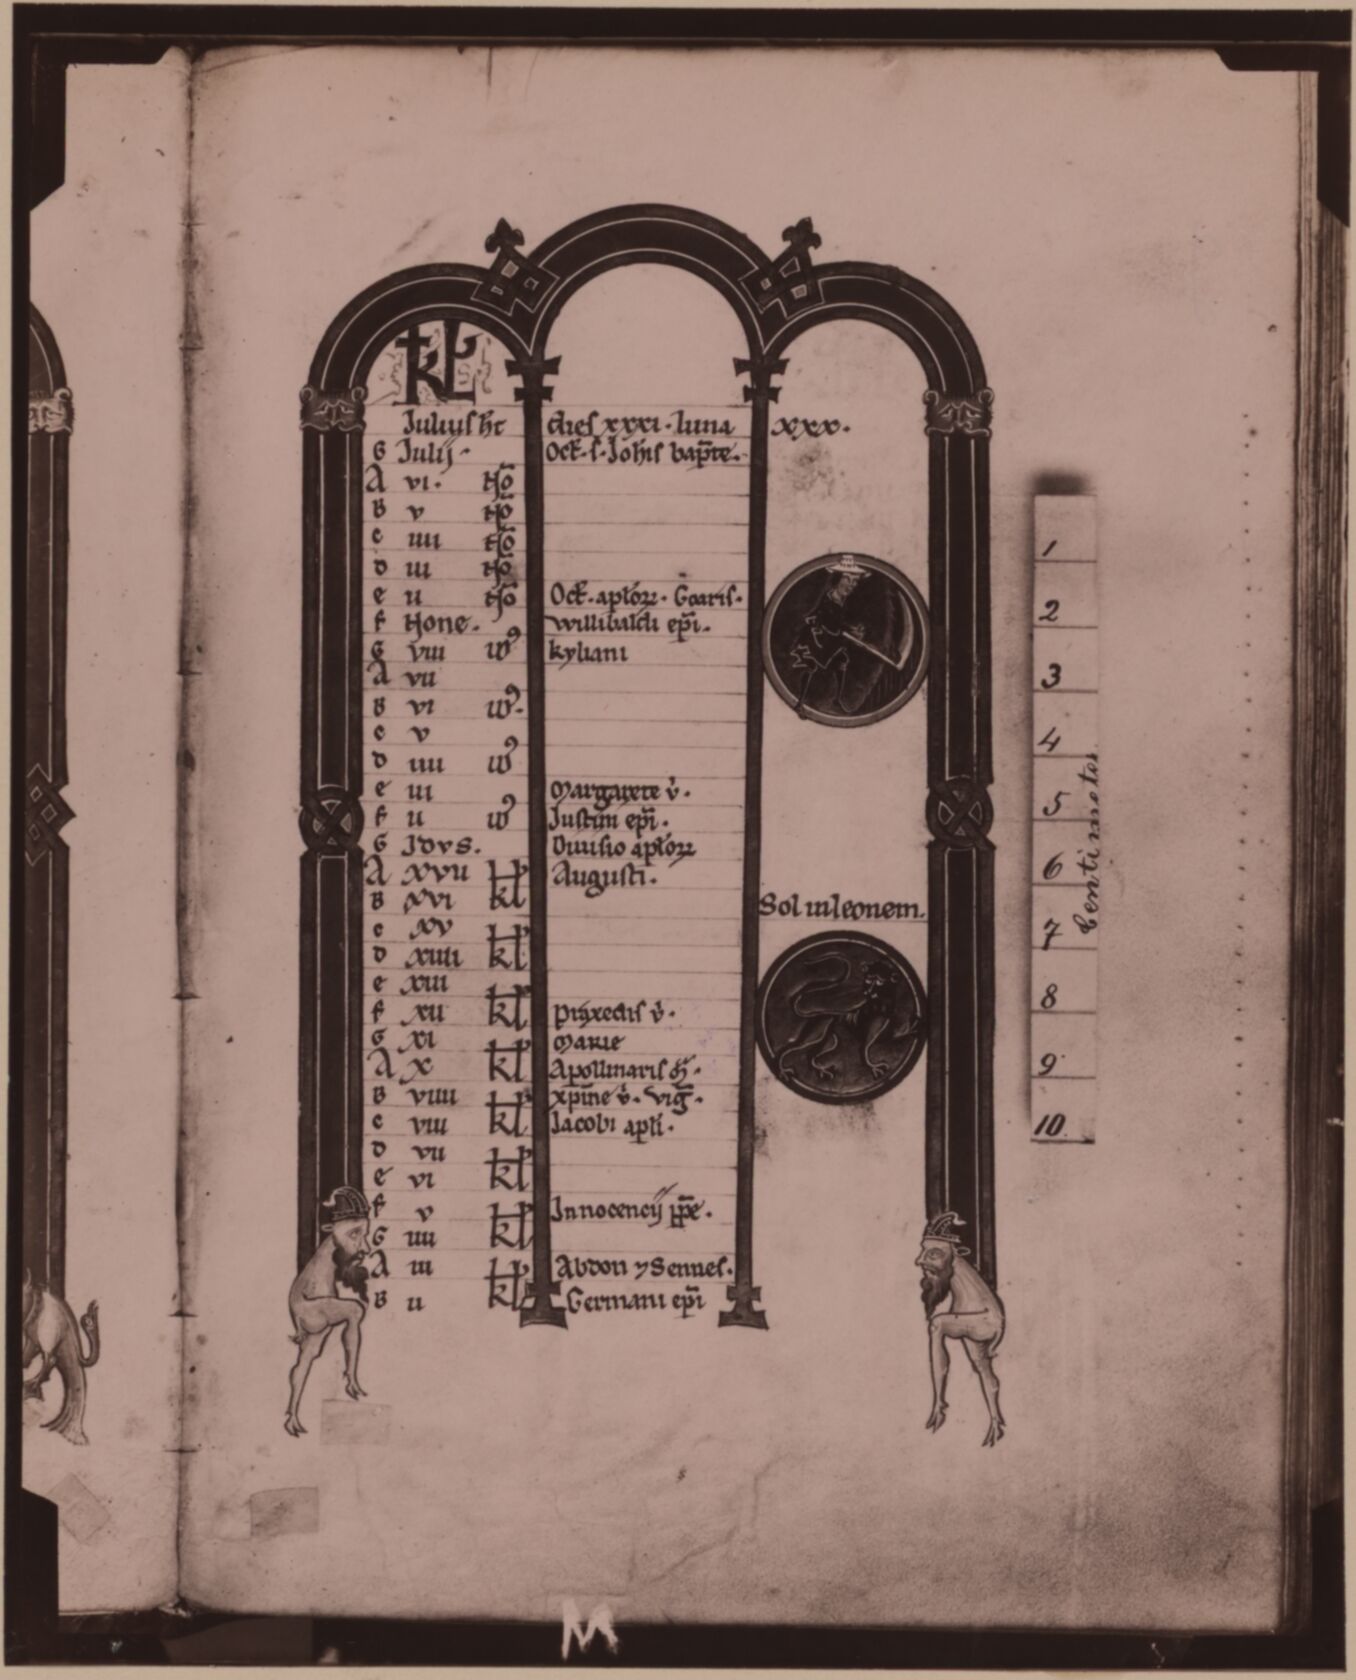 KL
Julius ht dies xxxi. luna xxx.
G Julij. Oct. s. Johis bapte.
A vi. No
B v No
c iiii No
D iii No
e ii No Oct. aplor. Goaris.
F None. willibaldi epi.
G viii id9 kyliani
A vii
B vi id9.
c v
D iiii id9
e iii Margarete v.
F ii id9 Justini epi.
G Idvs. Diuisio aplor
A xvii kl Augusti.
B xvi
c xv kl
D xiiii
e xiii kl
F xii praxedis v.
G xi kl Marie
A x Apollinaris
B viiii kl xpine v. vig.
c viii Jacobi apli.
D vii kl
e vi
F v kl Innocencij ppe.
G iiii
A iii kl Abdon 7 Sennes.
B ii Germani epi
Sol in leonem.
1
2
3
4
5
6
7
8
9
10
Centimeter
M